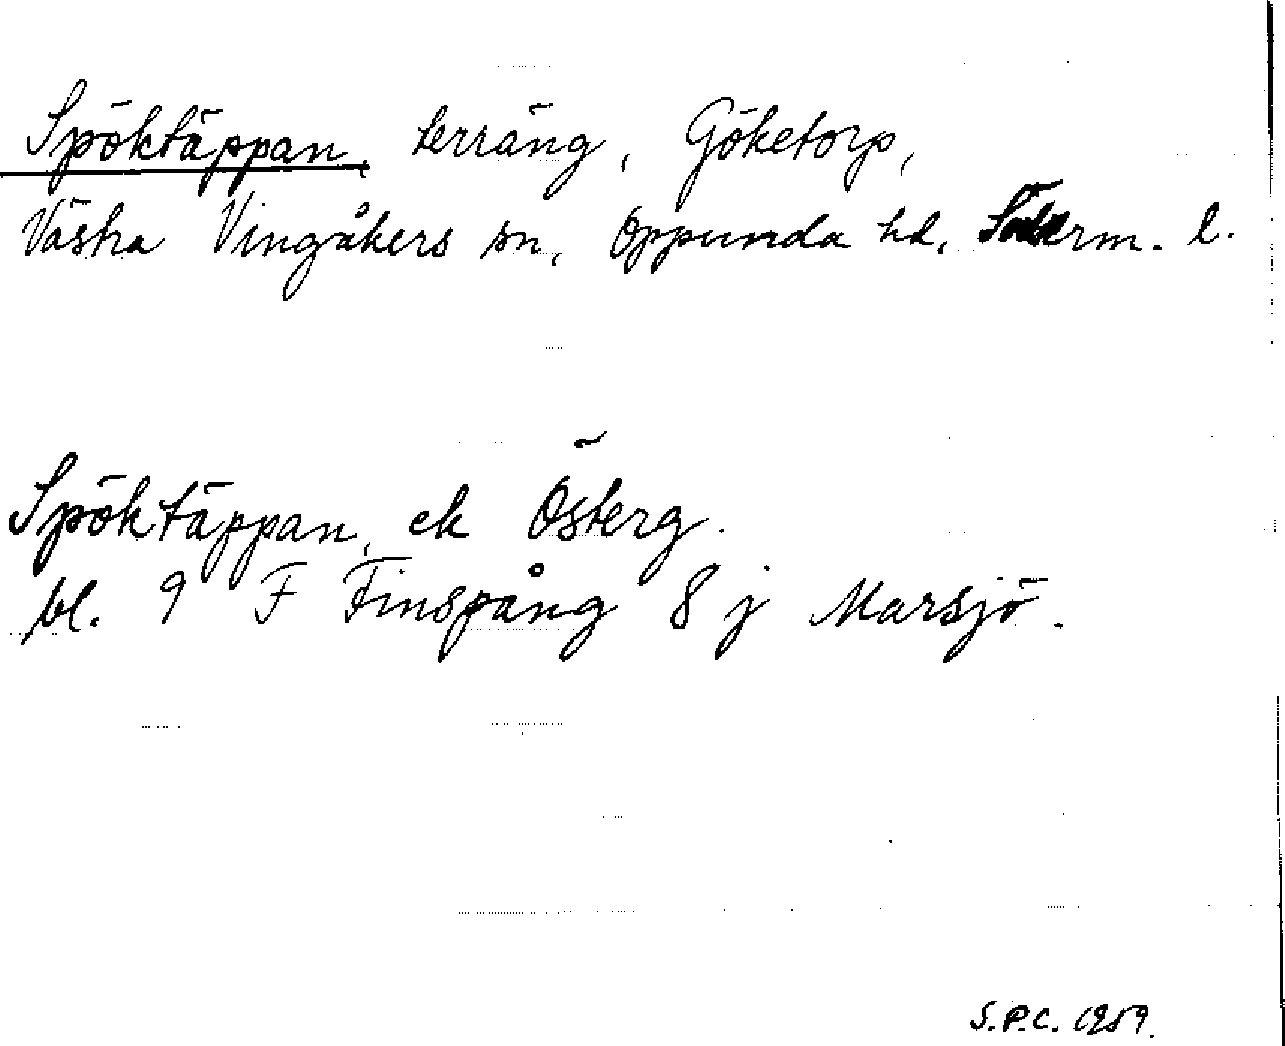 Spöktäppan, terräng, Göketorp,
Västra Vingåkers sn, Oppunda hd, Söderm. l.
Spöktäppan, ek Österg.
bl. 9 F Finspång 8 j Marsjö.
S.P.C. 1959.